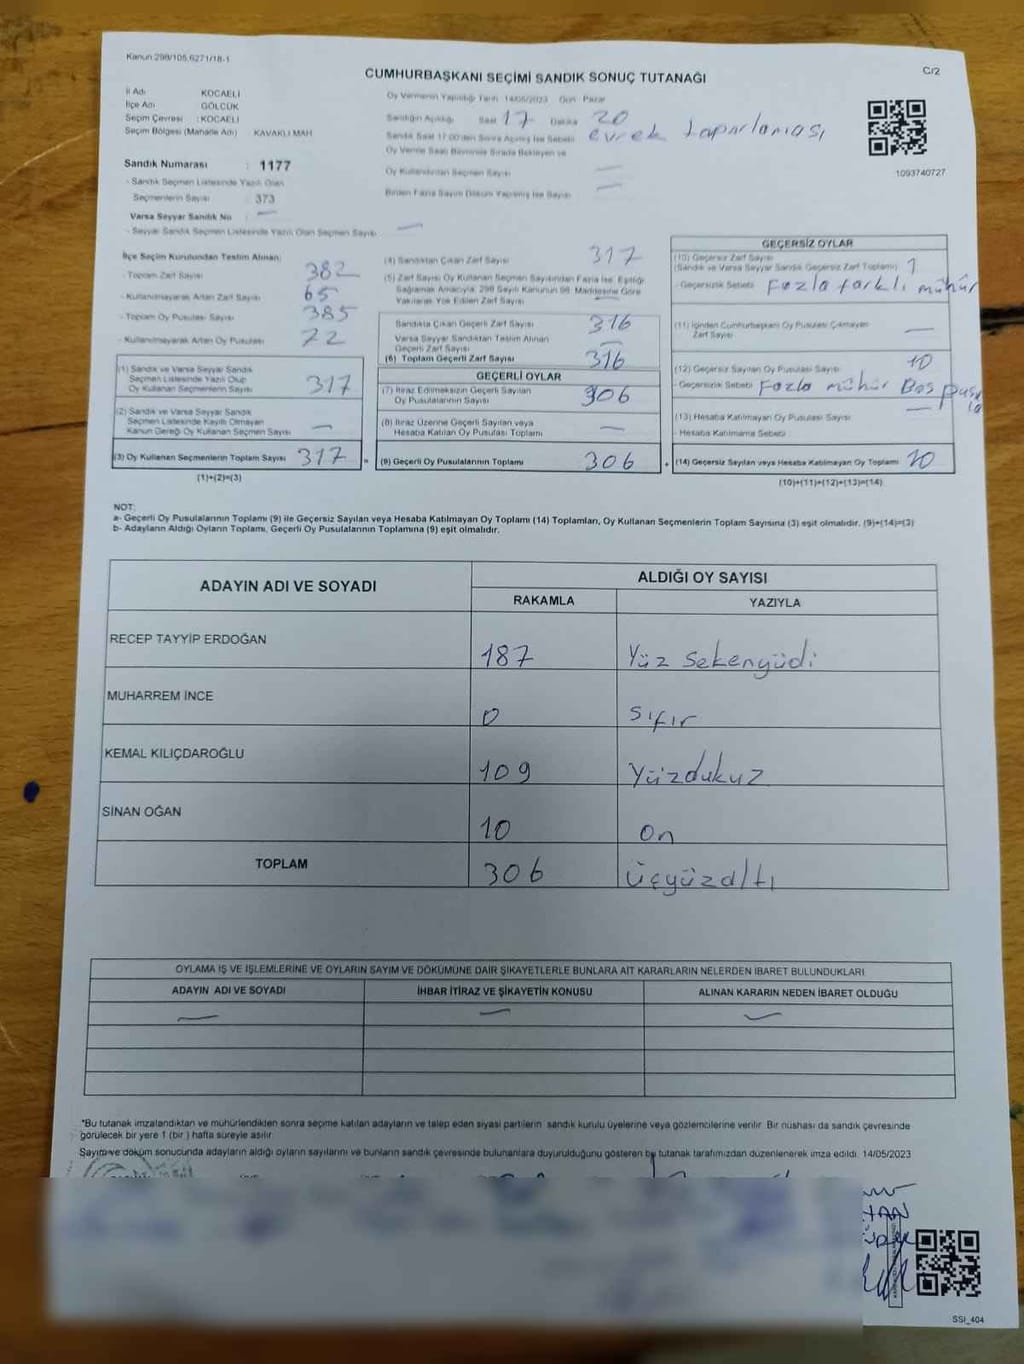 Kanun 298/105,6271/18-1
C/2
CUMHURBAŞKANI SEÇİMİ SANDIK SONUÇ TUTANAĞI
İl Adı KOCAELİ
İlçe Adı GÖLCÜK
Seçim Çevresi : KOCAELİ
Seçim Bölgesi (Mahalle Adı) KAVAKLI MAH
Sandık Numarası : 1177
- Sandık Seçmen Listesinde Yazılı Olan
Seçmenlerin Sayısı 373
Varsa Seyyar Sandık No : —
- Seyyar Sandık Seçmen Listesinde Yazılı Olan Seçmen Sayısı —
Oy Vermenin Yapıldığı Tarih 14/05/2023 Gün Pazar
Sandığın Açıldığı Saat 17 Dakika 20
Sandık Saat 17:00'den Sonra Açılmış İse Sebebi evrek toparlaması
Oy Verme Saati Bitiminde Sırada Bekleyen ve
Oy Kullandırılan Seçmen Sayısı —
Birden Fazla Sayım Döküm Yapılmış İse Sayısı —
1093740727
İlçe Seçim Kurulundan Teslim Alınan:
- Toplam Zarf Sayısı 382
- Kullanılmayarak Artan Zarf Sayısı 65
- Toplam Oy Pusulası Sayısı 385
- Kullanılmayarak Artan Oy Pusulası 72
(1) Sandık ve Varsa Seyyar Sandık
Seçmen Listesinde Yazılı Olup
Oy Kullanan Seçmenlerin Sayısı 317
(2) Sandık ve Varsa Seyyar Sandık
Seçmen Listesinde Kayıtlı Olmayan
Kanun Gereği Oy Kullanan Seçmen Sayısı —
(3) Oy Kullanan Seçmenlerin Toplam Sayısı 317
(1)+(2)=(3)
(4) Sandıktan Çıkan Zarf Sayısı 317
(5) Zarf Sayısı Oy Kullanan Seçmen Sayısından Fazla İse, Eşitliği
Sağlamak Amacıyla, 298 Sayılı Kanunun 98. Maddesine Göre
Yakılarak Yok Edilen Zarf Sayısı —
Sandıkta Çıkan Geçerli Zarf Sayısı 316
Varsa Seyyar Sandıktan Teslim Alınan
Geçerli Zarf Sayısı —
(6) Toplam Geçerli Zarf Sayısı 316
GEÇERLİ OYLAR
(7) İtiraz Edilmeksizin Geçerli Sayılan
Oy Pusulalarının Sayısı 306
(8) İtiraz Üzerine Geçerli Sayılan veya
Hesaba Katılan Oy Pusulası Toplamı —
= (9) Geçerli Oy Pusulalarının Toplamı 306
GEÇERSİZ OYLAR
(10) Geçersiz Zarf Sayısı
(Sandık ve Varsa Seyyar Sandık Geçersiz Zarf Toplamı) 1
- Geçersizlik Sebebi Fazla farklı mühür
(11) İçinden Cumhurbaşkanı Oy Pusulası Çıkmayan
Zarf Sayısı —
(12) Geçersiz Sayılan Oy Pusulası Sayısı 10
- Geçersizlik Sebebi Fazla mühür Boş pusula
(13) Hesaba Katılmayan Oy Pusulası Sayısı —
- Hesaba Katılmama Sebebi
+ (14) Geçersiz Sayılan veya Hesaba Katılmayan Oy Toplamı 10
(10)+(11)+(12)+(13)=(14)
NOT:
a- Geçerli Oy Pusulalarının Toplamı (9) ile Geçersiz Sayılan veya Hesaba Katılmayan Oy Toplamı (14) Toplamları, Oy Kullanan Seçmenlerin Toplam Sayısına (3) eşit olmalıdır. (9)+(14)=(3)
b- Adayların Aldığı Oyların Toplamı, Geçerli Oy Pusulalarının Toplamına (9) eşit olmalıdır.
ADAYIN ADI VE SOYADI
ALDIĞI OY SAYISI
RAKAMLA YAZIYLA
RECEP TAYYİP ERDOĞAN 187 Yüz Sekenyüdi
MUHARREM İNCE 0 Sıfır
KEMAL KILIÇDAROĞLU 109 Yüzdukuz
SİNAN OĞAN 10 On
TOPLAM 306 Üçyüzaltı
OYLAMA İŞ VE İŞLEMLERİNE VE OYLARIN SAYIM VE DÖKÜMÜNE DAİR ŞİKAYETLERLE BUNLARA AİT KARARLARIN NELERDEN İBARET BULUNDUKLARI
ADAYIN ADI VE SOYADI İHBAR İTİRAZ VE ŞİKAYETİN KONUSU ALINAN KARARIN NEDEN İBARET OLDUĞU
— — —
*Bu tutanak imzalandıktan ve mühürlendikten sonra seçime katılan adayların ve talep eden siyasi partilerin sandık kurulu üyelerine veya gözlemcilerine verilir. Bir nüshası da sandık çevresinde
görülecek bir yere 1 (bir ) hafta süreyle asılır.
Sayım ve döküm sonucunda adayların aldığı oyların sayılarını ve bunların sandık çevresinde bulunanlara duyurulduğunu gösteren bu tutanak tarafımızdan düzenlenerek imza edildi. 14/05/2023
SSI_404